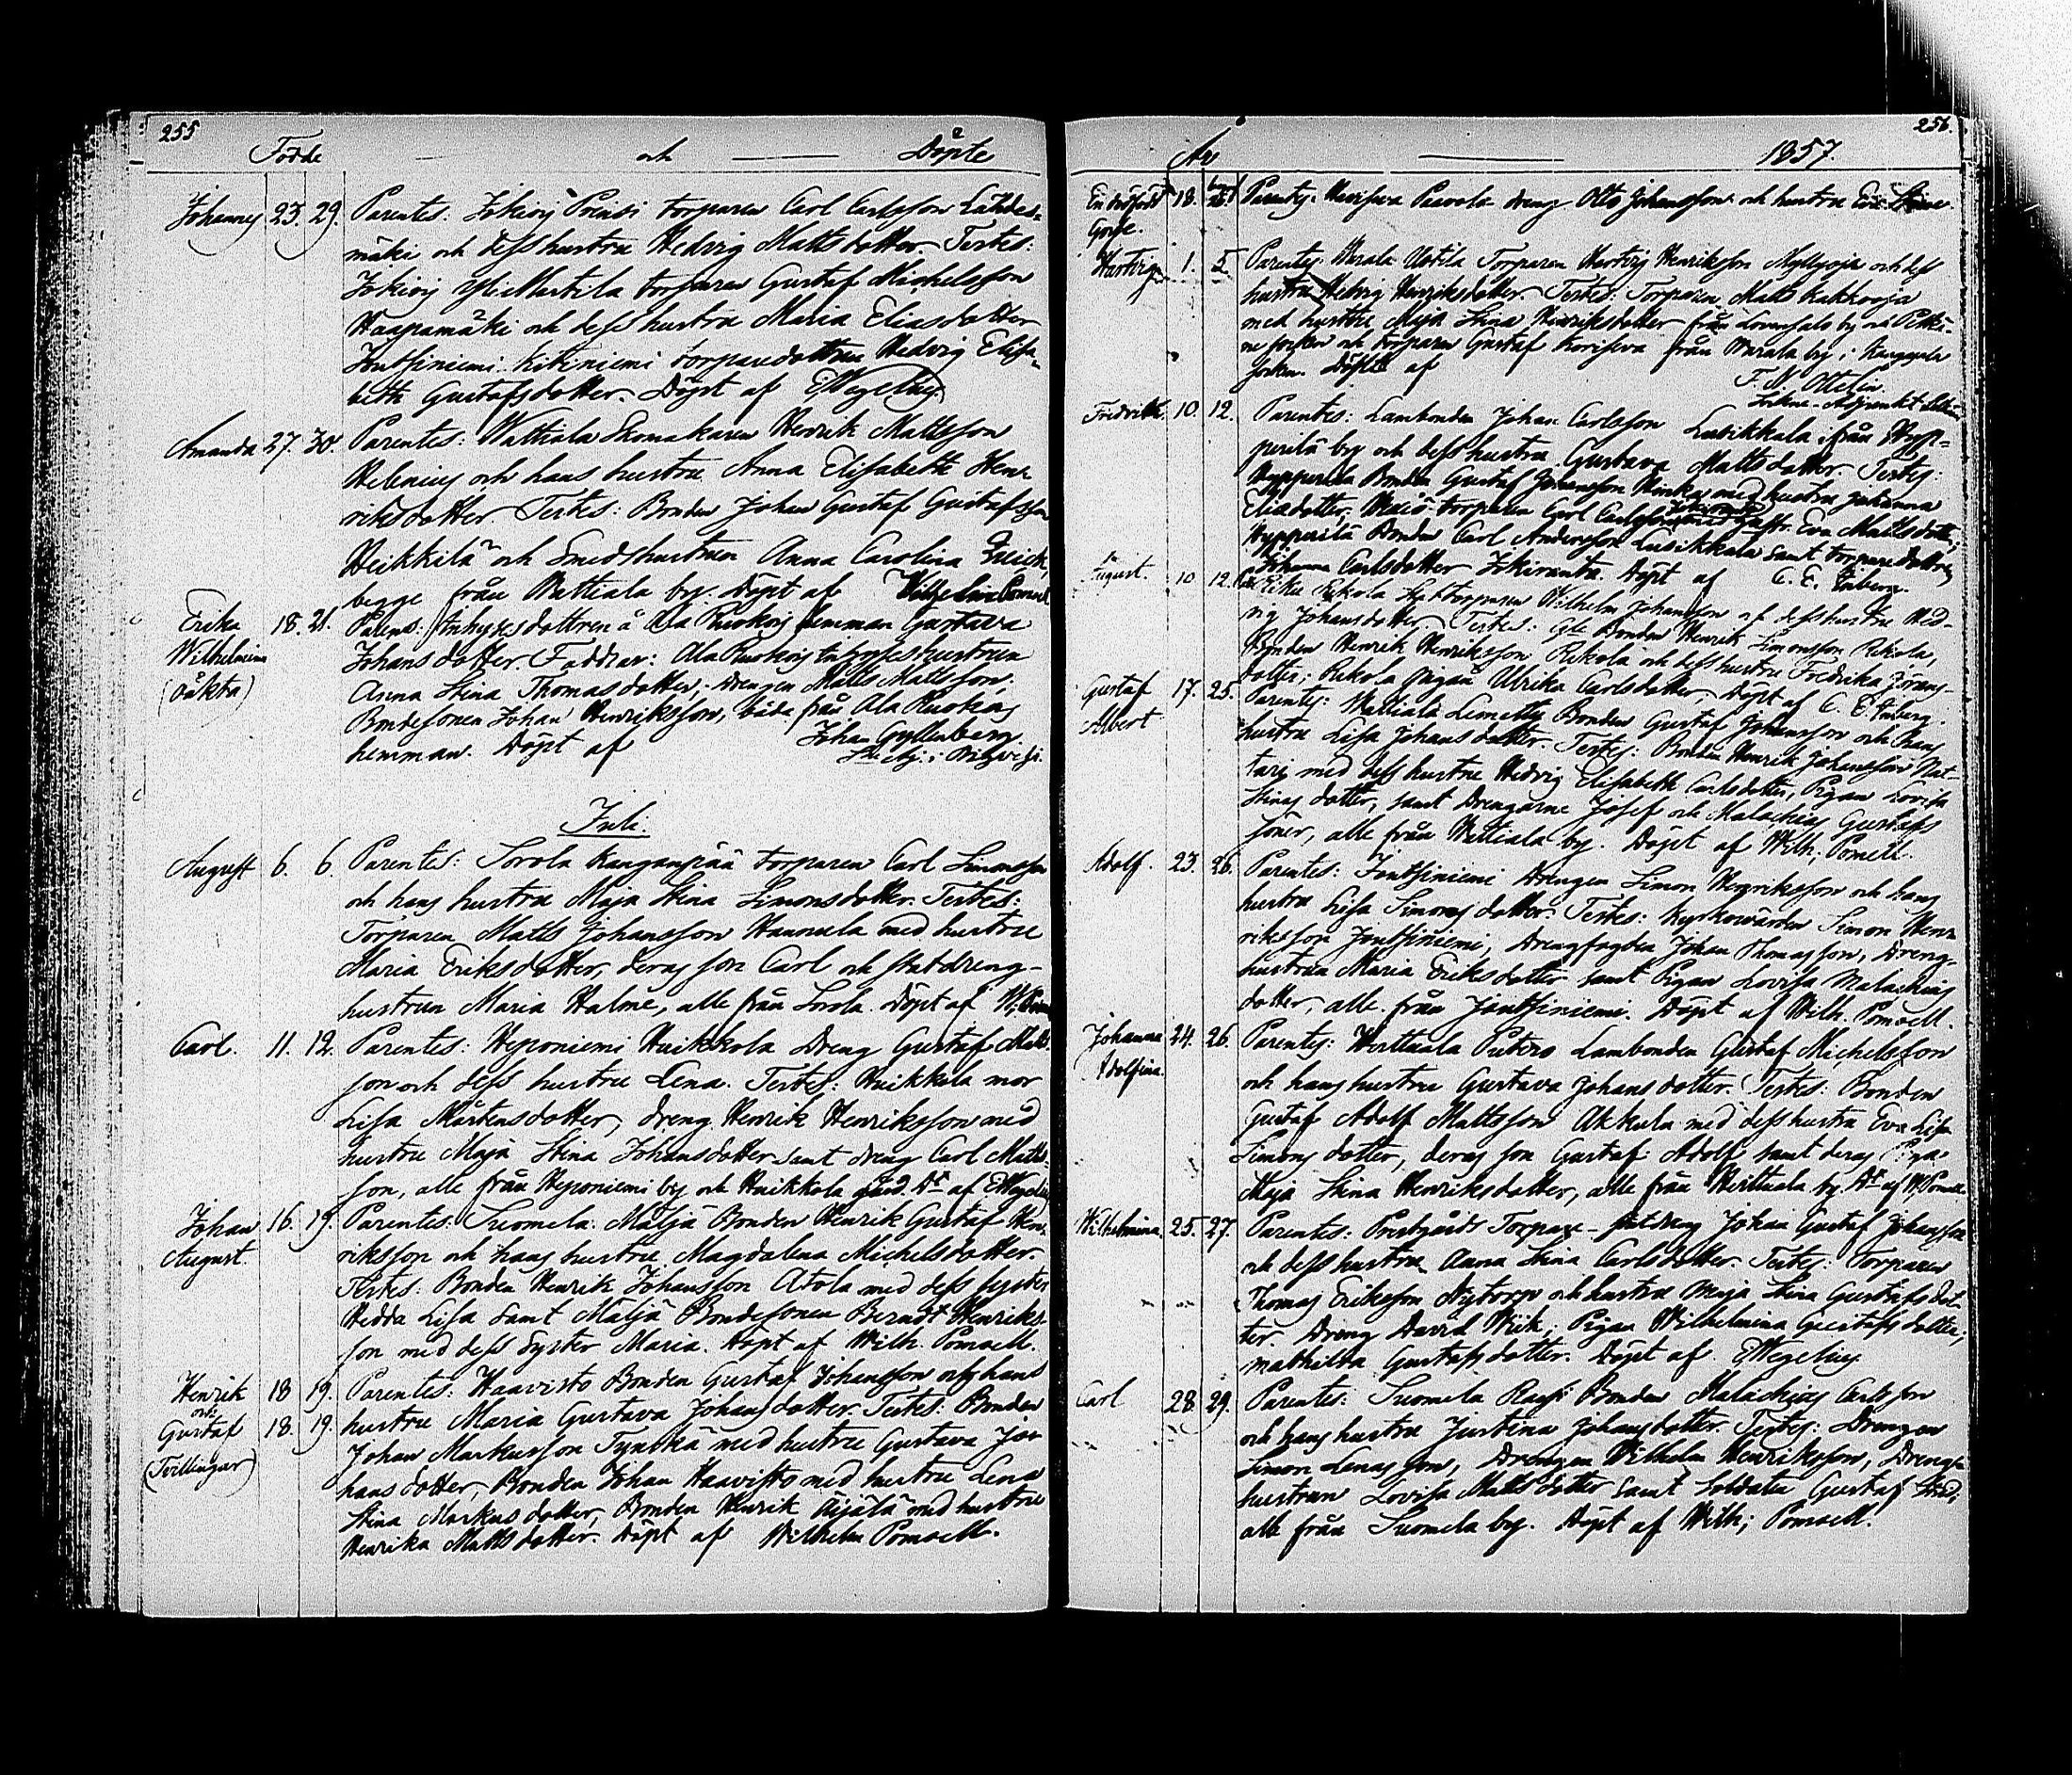 255
Födde och Döpte
Johannes 23. 29. Parentes: Jokiois Prensi torparen Carl Carlsson Lähdes-
mäki och dess hustru Hedvig Mattsdotter. Testes:
Jokiois Yli Martila torparen Gustaf Michelsson
Haapamäki och dess hustru Maria Eliasdotter
Jontsiniemi Kitiniemi torparedottren Hedvig Elisa-
beth Gustafsdotter. Döpt af EWegelius.
Amanda 27. 30. Parentes: Wattiala Skomakaren Henrik Mattsson
Helenius och hans hustru Anna Elisabeth Hen-
riksdotter. Testes: Bonden Johan Gustaf Gustafsson
Heikkilä och Smedshustrun Anna Carolina
begge från Wattiala by. Döpt af Wilhelm Pomoell
Erika 18. 21. Parens: Inhysesdottren å Ala Ruokois hemman Gustava
Wilhelmina Johansdotter. Faddrar: Ala Ruokois inhyseshustrun
(oäkta) Anna Stina Thomasdotter, drengen Matts Mattsson,
Bondesonen Johan Henriksson, båda från Ala Ruokois
hemman. Döpt af Johan Gyllenberg
Juli.
August 6. 6. Parentes: Sorola Kangaspää torparen Carl Simonsson
och hans hustru Maja Stina Simonsdotter. Testes:
Torparen Matts Johansson Hannula med hustru
Maria Eriksdotter, deras son Carl och statdreng-
hustrun Maria Halme, alle från Sorola. Döpt af W.
Carl. 11. 12. Parentes: Heponiemi Huikkola Dreng Gustaf Matts-
son och dess hustru Lena. Testes: Huikkola mor
Lisa Mårtensdotter, dreng Henrik Henriksson med
hustru Maja Stina Johansdotter samt dreng Carl Matts-
son, alle från Heponiemi by och Huikkola gård. Dt af EWegelius
Johan 16. 19. Parentes: Suomela Maljä Bonden Henrik Gustaf Hen-
August. riksson och hans hustru Magdalena Michelsdotter.
Testes: Bonden Henrik Johansson Atola med dess syster
Hedda Lisa samt Maljä Bondesonen Berndt Henriks-
son med dess Syster Maria. Döpt af Wilh. Pomoell.
Henrik 18 19. Parentes: Haavisto Bonden Gustaf Johansson och hans
och
Gustaf 18. 19. hustru Maria Gustava Johansdotter. Testes: Bonden
(Tvillingar) Johan Markusson Tynskä med hustru Gustava Jo-
hansdotter, Bonden Johan Haavisto med hustru Lena
Stina Markusdotter, Bonden Henrik Äijälä med hustru
Henrika Mattsdotter. Döpt af Wilhelm Pomoell.
256.
År 1857.
En dödfödd 18. Parentes: Paavola dreng Otto Johansson och hustru Eva Stina.
Gosse.
Hartvig 1. 5. Parentes: Warala Uotila Torparen Hartvig Henriksson Myllyoja och dess
hustru Hedvig Henriksdotter. Testes: Torparen Matts Kukkooja
med hustru Maja Stina Henriksdotter från by och
socken och torparen Gustaf från Warala by i Kangasala
socken. Döpte af
F. N. Ottelin
Sockne-Adjunkt
Fredrika 10. 12. Parentes: Lambonden Johan Carlsson Lusikkala ifrån Hyp-
perilä by och dess hustru Gustava Mattsdotter. Testes:
Hypperilä Bonden Gustaf Johansson med hustru Johanna
Eliadotter, torparen Carl Eva Mattsdotter,
Hypperilä Bonden Carl Andersson Lusikkala samt torparedottren
Johanna Carlsdotter Jokiranta. Döpt af C. E. Enberg.
August. 10 12. Rikola torparen Wilhelm Johansson och dess hustru Hed-
vig Johansdotter. Testes: Bonden Henrik Simonsson Rikola,
Bonden Henrik Henriksson Rikola och dess hustru Fredrika Jörans-
dotter, Rikola pigan Ulrika Carlsdotter. Döpt af C. E. Enberg.
Gustaf 17. 25. Parentes: Wattiala Lemetty Bonden Gustaf Johansson och hans
Albert hustru Lisa Johansdotter. Testes: Bonden Henrik Johansson Nat-
tari med dess hustru Hedvig Elisabeth Carlsdotter, Pigan Lovisa
Stinasdotter, samt Drengarne Josef och Malachias Gustafs
söner, alle från Wattiala by. Döpt af Wilh; Pomoell.
Adolf. 23. 26. Parentes: Jontsiniemi Drengen Simon Henriksson och hans
hustru Lisa Simonsdotter. Testes: Kyrkovärden Simon Hen-
riksson Jontsiniemi, Drengfogden Johan Thomasson, Dreng-
hustrun Maria Eriksdotter samt Pigan Lovisa Malachias
dotter, alle från Jontsiniemi. Döpt af Wilh. Pomoell.
Johanna 24. 26. Parentes: Herttuala Peters Lambonden Gustaf Michelsson
Adolfina. och hans hustru Gustava Johansdotter. Testes: Bonden
Gustaf Adolf Mattsson Akkula med dess hustru Eva Lisa
Simonsdotter, deras son Gustaf Adolf samt deras Piga
Maja Stina Henriksdotter, alle från Herttuala by. Dt af W. Pomoell
Wilhelmina. 25. 27. Parentes: Prestgårds Torpare- Johan Gustaf Johansson
och dess hustru Anna Stina Carlsdotter. Testes: Torparen
Thomas Eriksson Nytorp och hustru Maja Stina Gustafsdot-
ter, Dreng David Wiik, Pigan Wilhelmina Gustafsdotter,
Mathilda Gustafsdotter. Döpt af EWegelius
Carl 28 29. Parentes: Suomela Raussi Bonden Malachias Carlsson
och hans hustru Justina Johansdotter. Testes: Drengen
Simon Lenasson, Drengen Wilhelm Henriksson, Dreng-
hustrun Lovisa Mattsdotter samt Soldaten Gustaf
alle från Suomela by. Döpt af Wilh; Pomoell.